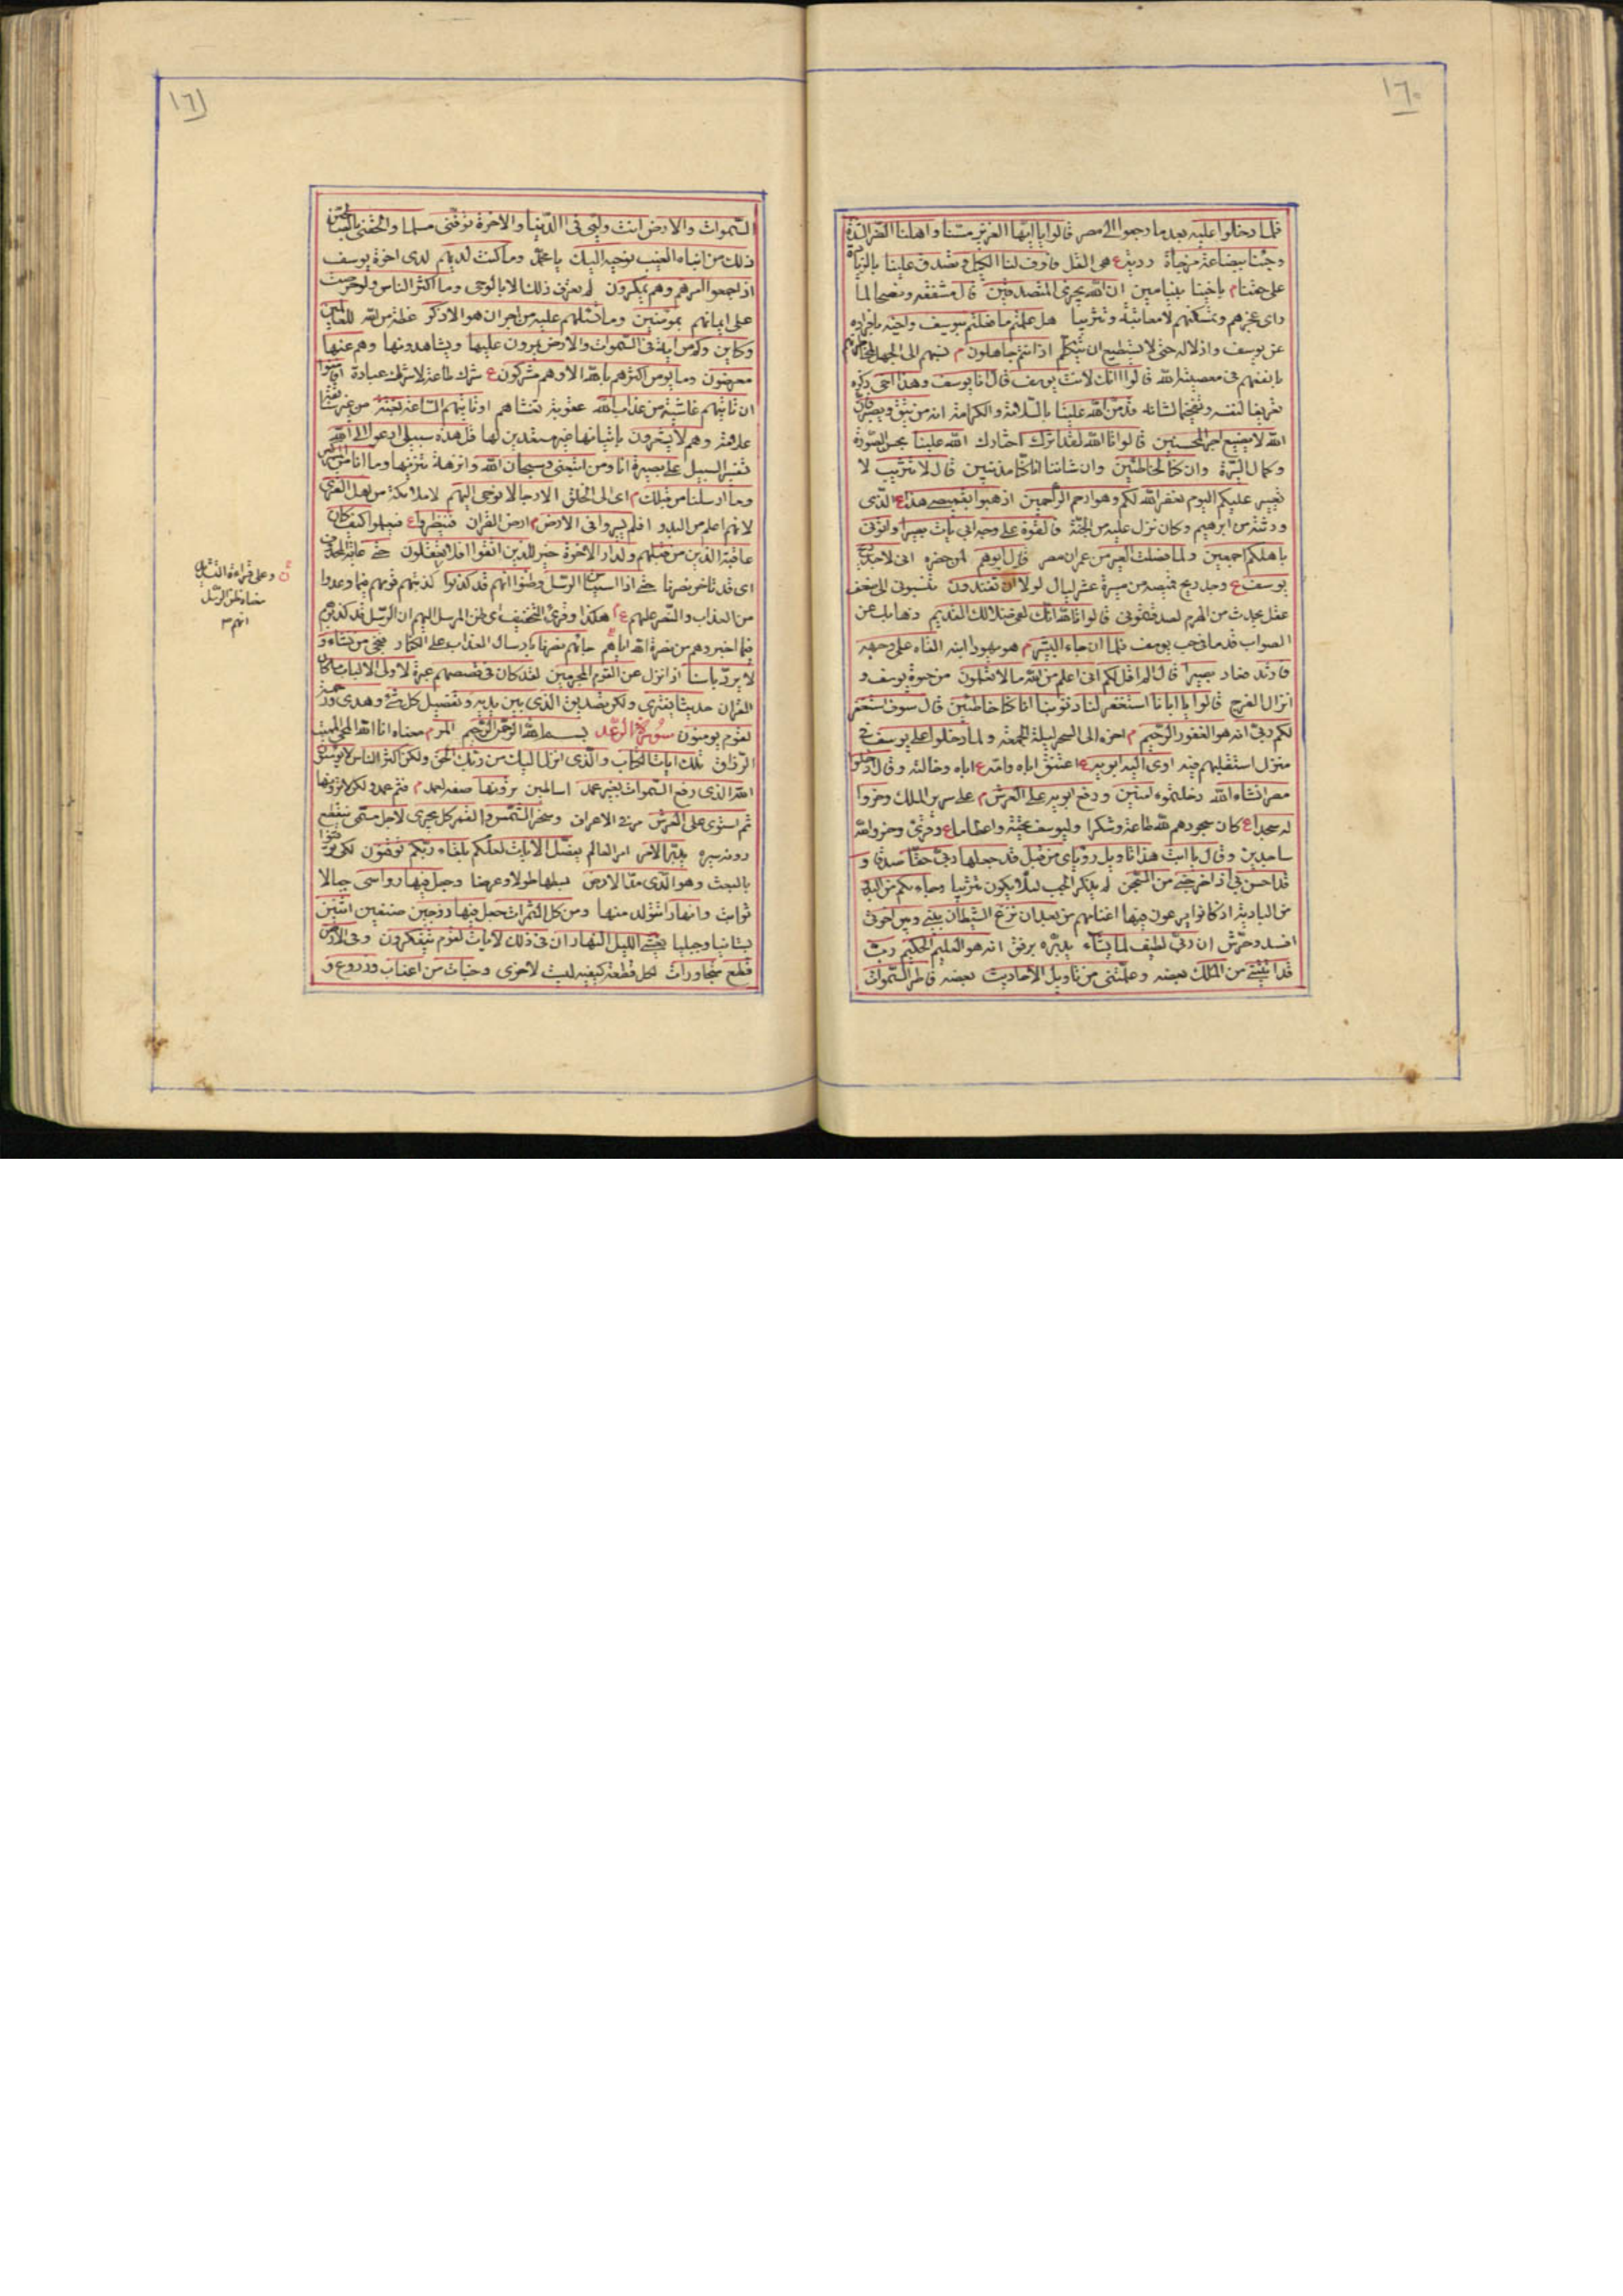 ١٦٠
فلما دخلوا عليه بعد ما رجعوا الى مصر قالوا يا ايها العزيز مسنا واهلنا الضر الشدة
وجئنا ببضاعة مزجاة ردية ع هى المقل فاوف لنا الكيل وتصدق علينا بالزيادة
على حقنا م باخينا بنيامين ان الله يجزى المتصدقين قال مشفقة ونصحا لما
راى عجزهم وتمسكنهم لا معاتبة وتثريبا هل علمتم ما فعلتم بيوسف واخيه بافراده
عن يوسف واذلاله حتى لا يستطيع ان يتكلم اذ انتم جاهلون م نسبهم الى الجهل
بانفسهم فى معصية الله قالوا اانك لانت يوسف قال انا يوسف وهذا اخى ذكره
تعريفا لنفسه وتفخيما لشانه قد من الله علينا بالسلامة والكرامة انه من يتق ويصبر فان
الله لا يضيع اجر المحسنين قالوا تالله لقد اثرك اختارك الله علينا بحسن الصورة
وكمال السيرة وان كنا لخاطئين وان شاننا انا كنا مذنبين قال لا تثريب لا
تعيير عليكم اليوم يغفر الله لكم وهو ارحم الراحمين اذهبوا بقميصى هذا ع الذى
ورثته من ابرهيم وكان نزل عليه من الجنة فالقوه على وجه ابى يات بصيرا واتونى
باهلكم اجمعين ولما فصلت العير من عمران مصر قال ابوهم لمن حضره انى لاجد ريح
يوسف ع وجد ريح قميصه من مسيرة عشر ليال لولا ان تفندون تنسبونى الى ضعف
عقل يحدث من الهرم لصدقتمونى قالوا تالله انك لفى ضلالك القديم ذهابك عن
الصواب قدما فى حب يوسف فلما ان جاء البشير م هو يهودا ابنه القاه على وجهه
فارتد فعاد بصيرا قال الم اقل لكم انى اعلم من الله ما لا تعلمون من حيوة يوسف و
انزال الفرج قالوا يا ابانا استغفر لنا ذنوبنا انا كنا خاطئين قال سوف استغفر
لكم ربى انه هو الغفور الرحيم م اخره الى السحر ليلة الجمعة ولما دخلوا على يوسف فى
منزل استقبلهم فيه اوى اليه ابويه ع اعتنق اباه وامه ع اباه وخالته وقال ادخلوا
مصر انشاء الله دخلتموه امنين ورفع ابويه على العرش م على سرير الملك وخروا
له سجدا ع كان سجودهم لله طاعة وشكرا وليوسف تحية واعظاما ع وقرئ وخروا لله
ساجدين وقال يا ابت هذا تاويل رؤياى من قبل قد جعلها ربى حقا صدقا و
قد احسن بى اذ اخرجنى من السجن لم يذكر الجب لئلا يكون تثريبا وجاء بكم من البدو
من البادية اذ كانوا يرعون فيها اغنامهم من بعد ان نزغ الشيطان بينى وبين اخوتى
افسد وحرش ان ربى لطيف لما يشاء يدبره برفق انه هو العليم الحكيم رب
قد اتيتنى من الملك بعضه وعلمتنى من تاويل الاحاديث بعضه فاطر السموات
١٦١
السموات والارض انت وليى فى الدنيا والاخرة توفنى مسلما والحقنى بالصالحين
ذلك من انباء الغيب نوحيه اليك يا محمد وما كنت لديهم لدى اخوة يوسف
اذ اجمعوا امرهم وهم يمكرون لم تعرف ذلك الا بالوحى وما اكثر الناس ولو حرصت
على ايمانهم بمؤمنين وما تسئلهم عليه من اجر ان هو الا ذكر عظة من الله للعالمين
وكاين وكم من اية فى السموات والارض يمرون عليها ويشاهدونها وهم عنها
معرضون وما يؤمن اكثرهم بالله الا وهم مشركون ع شرك طاعة لا شرك عبادة افامنوا
ان تاتيهم غاشية من عذاب الله عقوبة تغشاهم او تاتيهم الساعة بغتة من غير سابقة
علامة وهم لا يشعرون باتيانها غير مستعدين لها قل هذه سبيلى ادعوا الى الله
تفسير السبيل على بصيرة انا ومن اتبعنى وسبحان الله وانزهه تنزيها وما انا من المشركين
وما ارسلنا من قبلك م اى الى الخلق الا رجالا نوحى اليهم لا ملائكة من اهل القرى
لانهم اعلم من البدو افلم يسيروا فى الارض م ارض القران فينظروا ع فيعلموا كيف كان
عاقبة الذين من قبلهم ولدار الاخرة خير للذين اتقوا افلا يعقلون حتى
اى قد تاخر نصرنا حتى اذا استيئس الرسل وظنوا انهم قد كذبوا كذبتهم قومهم فيما وعدوا
من العذاب والنصر عليهم ع هكذا وقرئ بالتخفيف اى ظن المرسل اليهم ان الرسل قد كذبوهم
فيما اخبروهم من نصرة الله اياهم جائهم نصرنا بارسال العذاب على الكفار فنجى من نشاء و
لا يرد باسنا اذا نزل عن القوم المجرمين لقد كان فى قصصهم عبرة لاولى الالباب ما كان
القران حديثا يفترى ولكن تصديق الذى بين يديه وتفصيل كل شئ وهدى ورحمة
لقوم يؤمنون سورة الرعد بسم الله الرحمن الرحيم المر م معناه انا الله المحيى المميت
الرزاق تلك ايات الكتاب والذى انزل اليك من ربك الحق ولكن اكثر الناس لا يؤمنون
الله الذى رفع السموات بغير عمد اساطين ترونها صفة لعمد م فثم عمد ولكن لا ترونها
ثم استوى على العرش وسخر الشمس والقمر كل يجرى لاجل مسمى ينقطع
دونه سيره يدبر الامر امر العالم يفصل الايات لعلكم بلقاء ربكم توقنون لكى توقنوا
بالبعث وهو الذى مد الارض بسطها طولا وعرضا وجعل فيها رواسى جبالا
ثوابت وانهارا تتولد منها ومن كل الثمرات جعل فيها زوجين صنفين اثنين
بستانيا وجبليا يغشى الليل النهار ان فى ذلك لايات لقوم يتفكرون وفى الارض
قطع متجاورات لكل قطعة كيفية ليست لاخرى وجنات من اعناب وزروع و
وعلى قراءة التشديد
معناه وظن الرسل
انهم